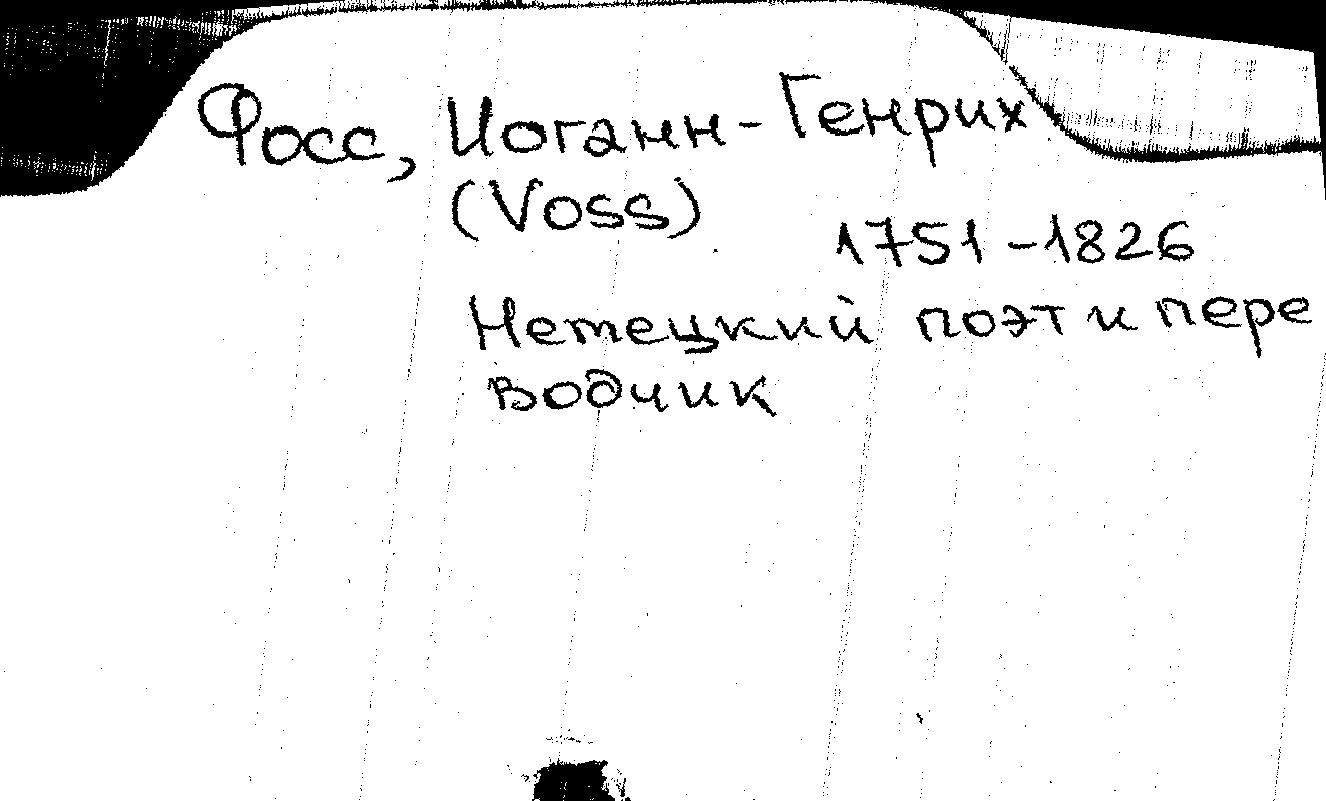 Фосс, Иоганн-Генрих
(Voss)
1751-1826
Немецкий поэт и пере
водчик